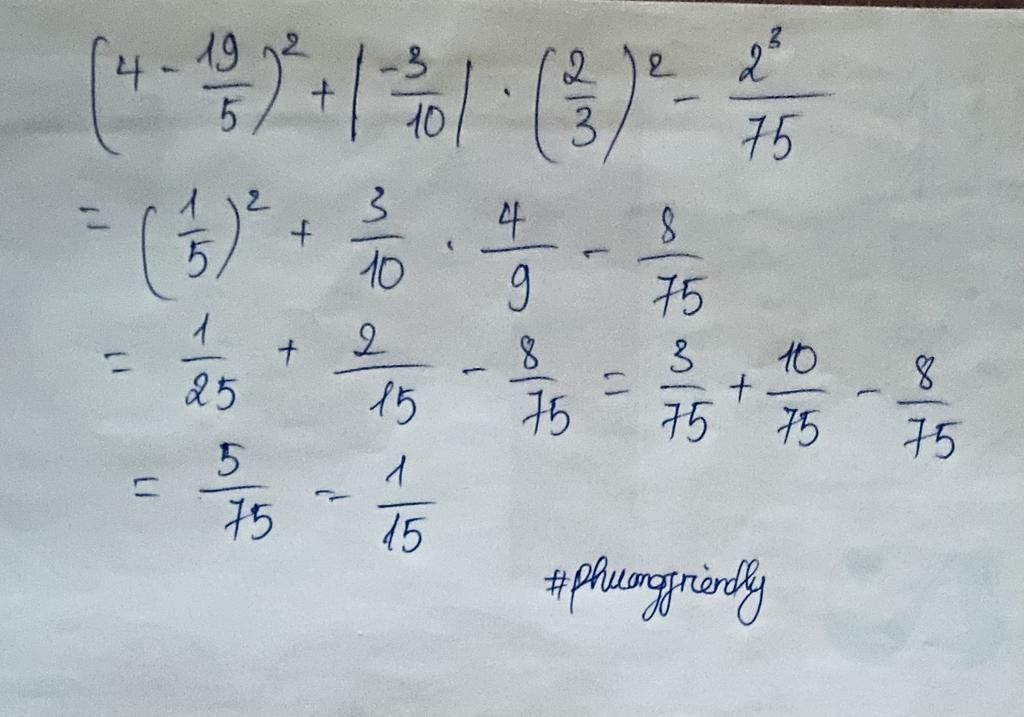 (4 - 19/5)² + |-3/10| · (2/3)² - 2³/75
= (1/5)² + 3/10 · 4/9 - 8/75
= 1/25 + 2/15 - 8/75 = 3/75 + 10/75 - 8/75
= 5/75 = 1/15
#phuongfriendly